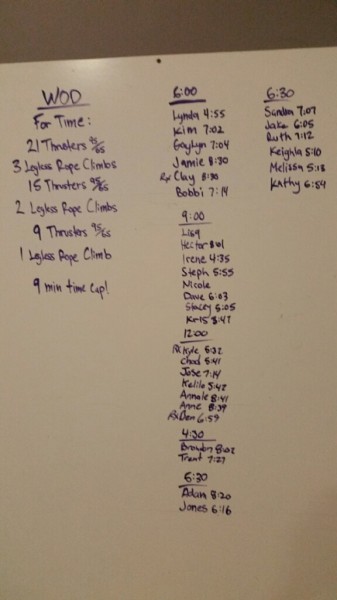 WOD
For Time:
21 Thrusters 95/65
3 Legless Rope Climbs
15 Thrusters 95/65
2 Legless Rope Climbs
9 Thrusters 95/65
1 Legless Rope Climb
9 min time cap!
6:00
Lynda 4:55
Kim 7:02
Gaylyn 7:04
Jamie 8:30
Rx Clay 8:30
Bobbi 7:14
9:00
Lisa
Hector 8:01
Irene 4:35
Steph 5:55
Nicole
Dave 6:03
Stacey 6:05
Kris 8:47
12:00
Rx Kyle 5:32
Chad 5:41
Jose 7:14
5:42
Annale 8:41
Anne 8:39
Rx Dan 6:59
4:30
Brandon 8:02
Trent 7:27
5:30
Adam 8:20
Jones 6:16
6:30
Sandra 7:07
Jake 6:05
Ruth 7:12
Keighla 5:10
Melissa 5:13
Kathy 6:54